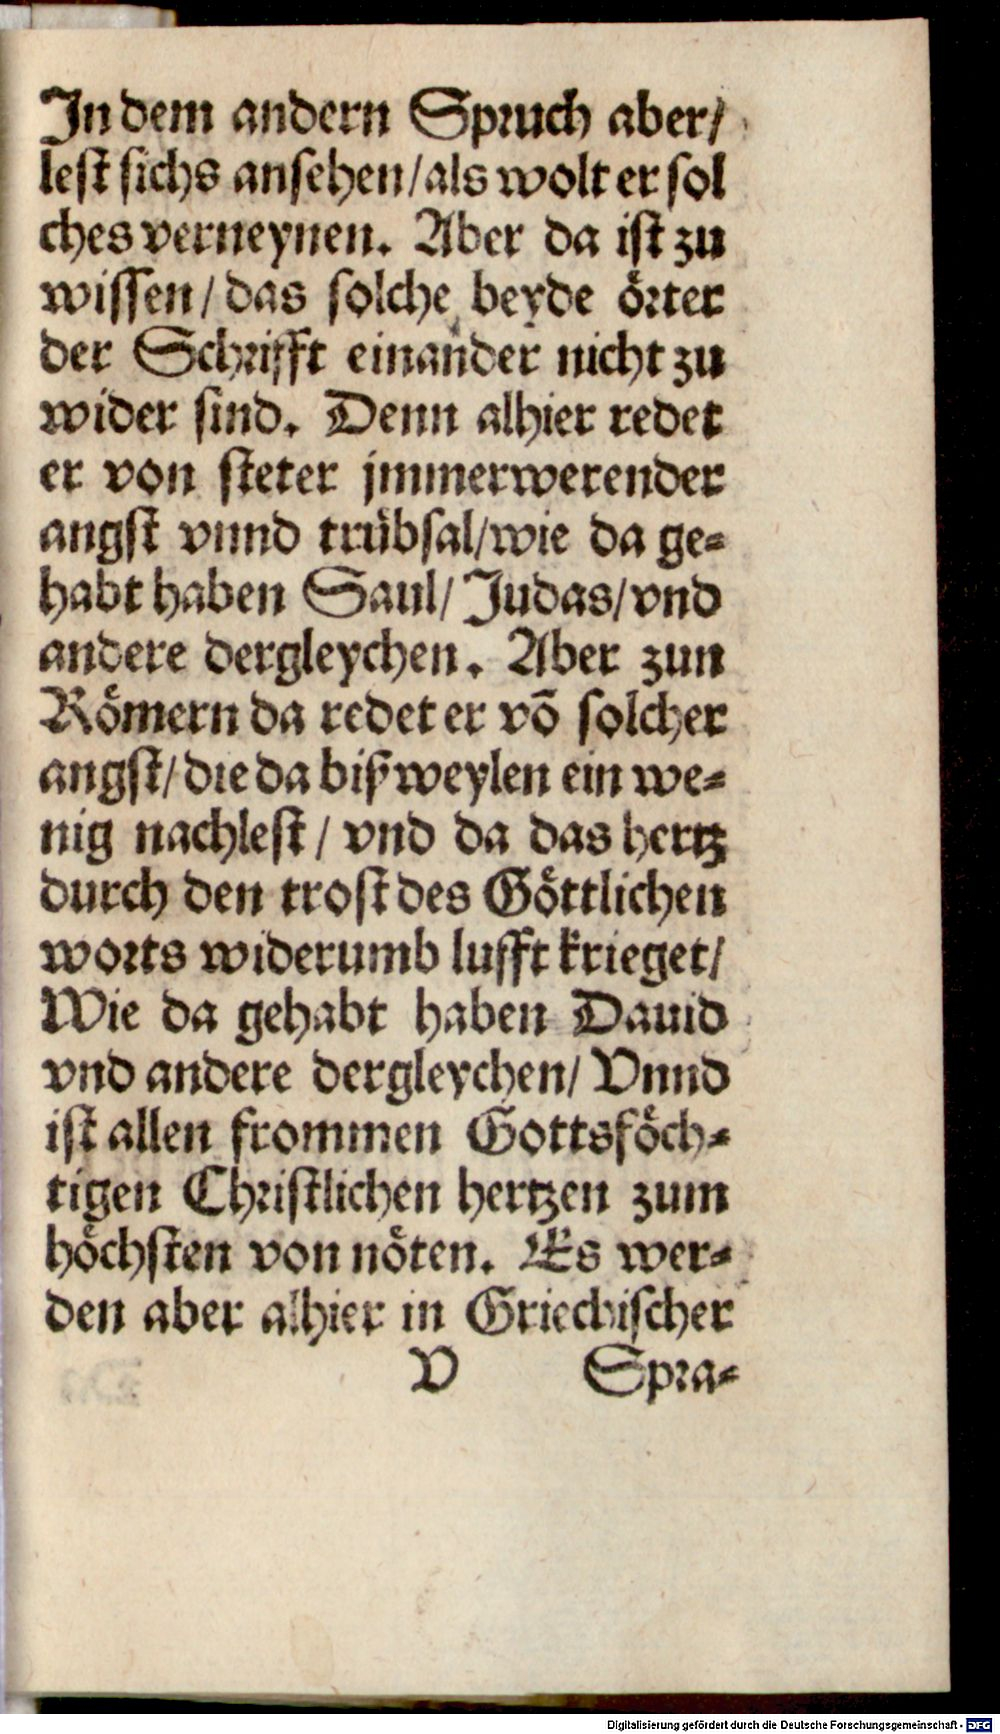 In dem andern Spruch aber/
lest sichs ansehen/als wolt er sol
ches verneynen. Aber da ist zu
wissen/das solche beyde örter
der Schrifft einander nicht zu
wider sind. Denn alhier redet
er von steter jmmerwerender
angst vnnd trübsal/wie da ge-
habt haben Saul/Judas/vnd
andere dergleychen. Aber zun
Römern da redet er võ solcher
angst/die da bißweylen ein we-
nig nachlest/vnd da das hertz
durch den trost des Göttlichen
worts widerumb lufft krieget/
Wie da gehabt haben Dauid
vnd andere dergleychen/Vnnd
ist allen frommen Gottsföch-
tigen Christlichen hertzen zum
höchsten von nöten. Es wer-
den aber alhier in Griechischer
V Spra-
Digitalisierung gefördert durch die Deutsche Forschungsgemeinschaft - DFG